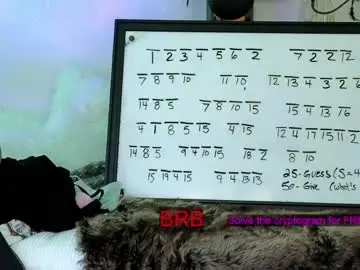 1 2 3 4 5 6 2 7 2 2 12
7 8 9 10 11 10, 12 13 4 3 2 6
14 8 5 7 8 10 15 15 4 13 16
4 1 8 5 15 4 15 12 4 17 15 11 2
14 8 5 9 4 10 15 18 2 8 10
15 19 4 15 9 4 13 13
25-Guess (S=4
50-Give (what's
BRB
Solve the cryptogram for FRE